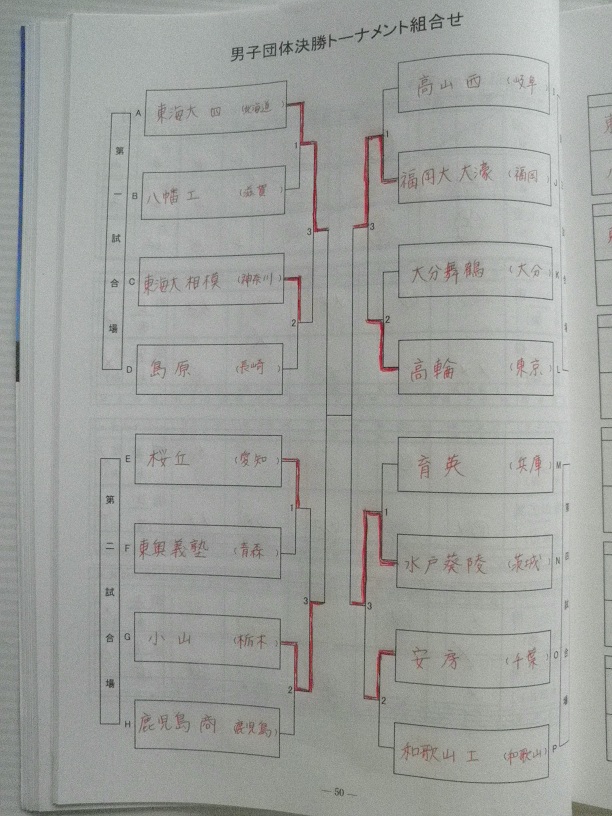 男子団体決勝トーナメント組合せ
第一試合場
A 東海大四 (北海道)
B 八幡工 (滋賀)
C 東海大相模 (神奈川)
D 島原 (長崎)
1
2
3
第二試合場
E 桜丘 (愛知)
F 東奥義塾 (青森)
G 小山 (栃木)
H 鹿児島商 (鹿児島)
1
2
3
高山西 (岐阜)
福岡大大濠 (福岡) J
大分舞鶴 (大分) K
高輪 (東京) L
1
2
3
育英 (兵庫) M
水戸葵陵 (茨城) N
安房 (千葉) O
和歌山工 (和歌山) P
1
2
3
— 50 —